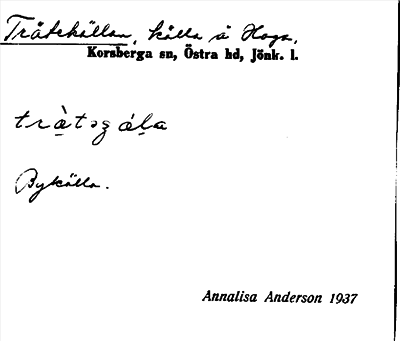 Trätekällan, källa å Haga,
Korsberga sn, Östra hd, Jönk. l.
tràtəgála
Bykälla.
Annalisa Anderson 1937